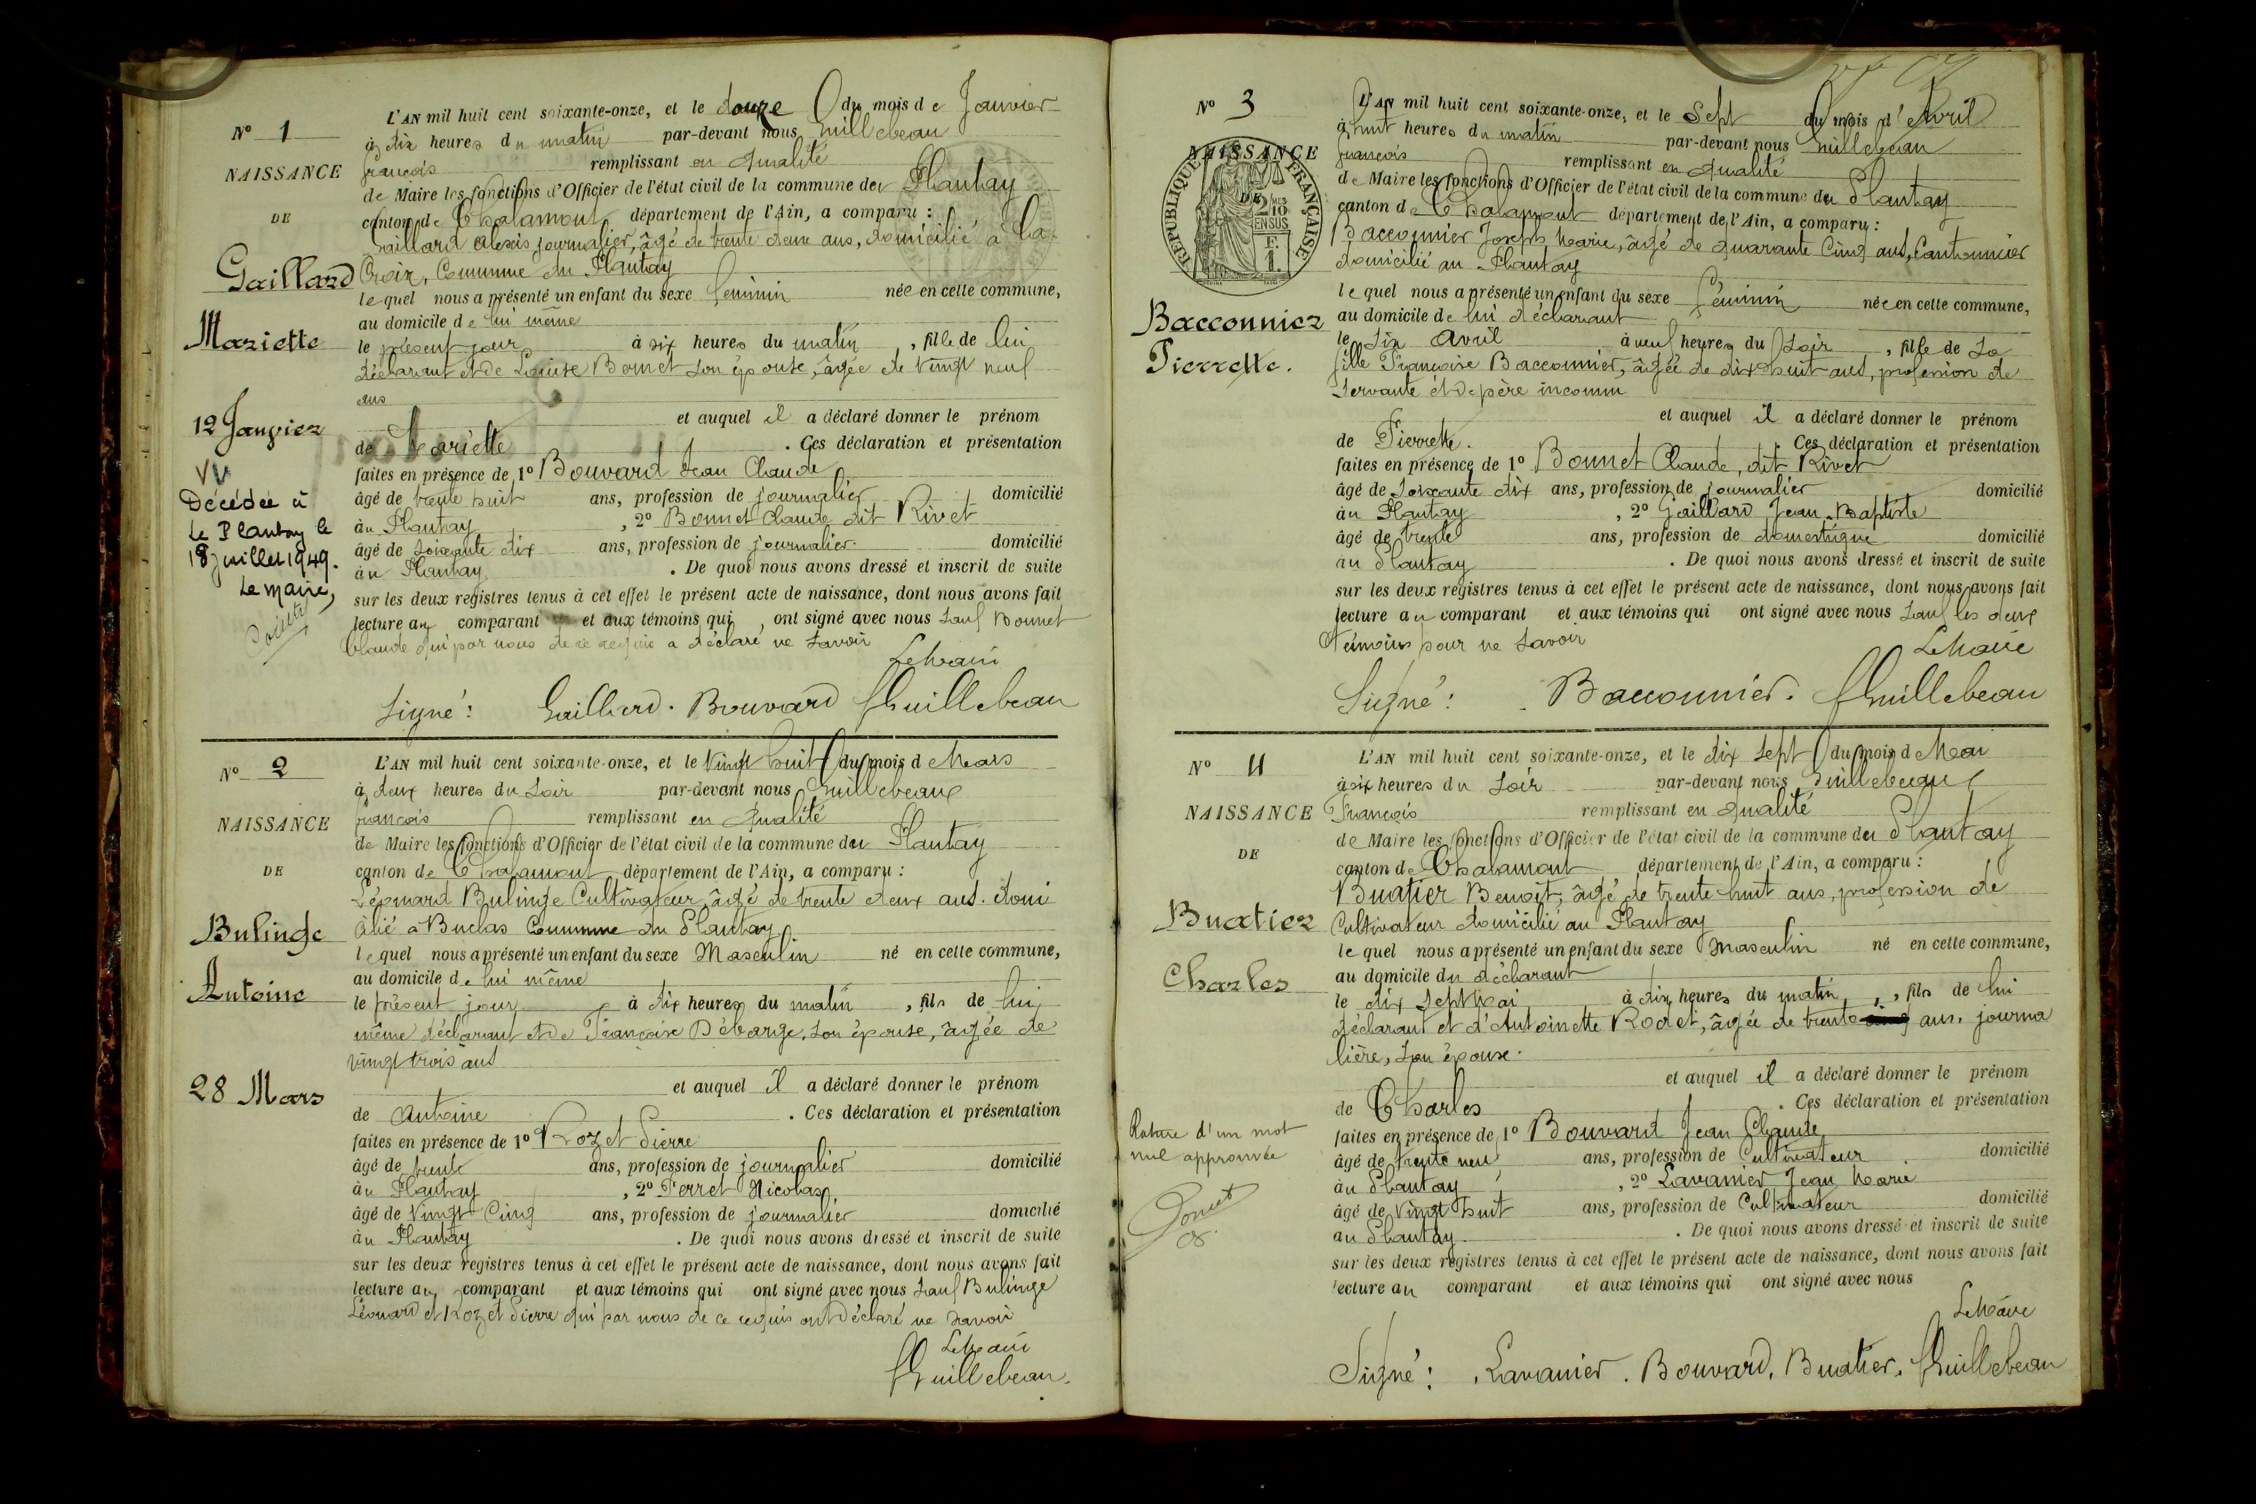 N° 1
NAISSANCE
DE
Gaillard
Mariette
12 Janvier
Vu
Décédée à
Le Plantay le
18 juillet 1949.
Le maire,
L'AN mil huit cent soixante-onze, et le douze du mois de Janvier
à dix heures du matin par-devant nous Guillebeau
françois remplissant en qualité
de Maire les fonctions d'Officier de l'état civil de la commune du Plantay
canton de Chalamont département de l'Ain, a comparu :
Gaillard Alexis journalier, âgé de trente deux ans, domicilié à la
Croix, Commune du Plantay
lequel nous a présenté un enfant du sexe feminin née en cette commune,
au domicile de lui même
le présent jour à six heures du matin, fille de lui
déclarant et de Louise Bonnet son épouse, âgée de vingt neuf
ans
et auquel il a déclaré donner le prénom
de Mariette . Ces déclaration et présentation
faites en présence de 1° Bouvard Jean Claude
âgé de trente huit ans, profession de journalier domicilié
au Plantay, 2° Bonnet Claude dit Rivet
âgé de soixante dix ans, profession de journalier. domicilié
au Plantay . De quoi nous avons dressé et inscrit de suite
sur les deux registres tenus à cet effet le présent acte de naissance, dont nous avons fait
lecture au comparant et aux témoins qui ont signé avec nous sauf Bonnet
Claude qui par nous de ce requis a déclaré ne savoir
Le Maire
Signé : Gaillard. Bouvard Guillebeau
N° 2
NAISSANCE
DE
Bulinge
Antoine
28 Mars
L'AN mil huit cent soixante-onze, et le Vingt huit du mois de Mars
à deux heures du soir par-devant nous Guillebeau
françois remplissant en qualité
de Maire les fonctions d'Officier de l'état civil de la commune du Plantay
canton de Chalamont département de l'Ain, a comparu :
Léonard Bulinge Cultivateur, âgé de trente deux ans. domi
cilié à Buclas Commune du Plantay
lequel nous a présenté un enfant du sexe Masculin né en cette commune,
au domicile de lui même
le présent jour à dix heures du matin, fils de lui
même déclarant et de Françoise Débarge, son épouse, âgée de
vingt trois ans
et auquel il a déclaré donner le prénom
de Antoine . Ces déclaration et présentation
faites en présence de 1° Rozet Pierre
âgé de trente ans, profession de journalier domicilié
au Plantay, 2° Ferret Nicolas,
âgé de Vingt Cinq ans, profession de journalier domicilié
au Plantay . De quoi nous avons dressé et inscrit de suite
sur les deux registres tenus à cet effet le présent acte de naissance, dont nous avons fait
lecture au comparant et aux témoins qui ont signé avec nous sauf Bulinge
Léonard et Rozet Pierre qui par nous de ce requis ont déclaré ne savoir
Le Maire
Guillebeau.
N° 3
NAISSANCE
DE
RÉPUBLIQUE FRANÇAISE
2/10 EN SUS
Bacconnier
Pierrette.
L'AN mil huit cent soixante-onze, et le Sept du mois d'Avril
à huit heures du matin par-devant nous Guillebeau
françois remplissant en qualité
de Maire les fonctions d'Officier de l'état civil de la commune du Plantay
canton de Chalamont département de l'Ain, a comparu :
Bacconnier Joseph Marie, âgé de quarante Cinq ans, Cantonnier
domicilié au Plantay
lequel nous a présenté un enfant du sexe Féminin née en cette commune,
au domicile de lui déclarant
le six avril à neuf heures du soir, fille de sa
fille Françoise Bacconnier, âgée de dix huit ans, profession de
servante et de père inconnu
et auquel il a déclaré donner le prénom
de Pierrette. . Ces déclaration et présentation
faites en présence de 1° Bonnet Claude, dit Rivet
âgé de Soixante dix ans, profession de journalier domicilié
au Plantay, 2° Gaillard Jean-Baptiste
âgé de trente ans, profession de domestique domicilié
au Plantay . De quoi nous avons dressé et inscrit de suite
sur les deux registres tenus à cet effet le présent acte de naissance, dont nous avons fait
lecture au comparant et aux témoins qui ont signé avec nous sauf les deux
témoins pour ne savoir
Le Maire
Signé : Bacconnier. Guillebeau
N° 4
NAISSANCE
DE
Buatier
Charles
Rature d'un mot
nul approuvée
L'AN mil huit cent soixante-onze, et le dix sept du mois de Mai
à six heures du soir par-devant nous Guillebeau
François remplissant en qualité
de Maire les fonctions d'Officier de l'état civil de la commune du Plantay
canton de Chalamont département de l'Ain, a comparu :
Buatier Benoit, âgé de trente-huit ans, profession de
Cultivateur domicilié au Plantay
lequel nous a présenté un enfant du sexe Masculin né en cette commune,
au domicile du déclarant
le dix sept Mai à dix heures du matin, fils de lui
déclarant et d'Antoinette Rodet, âgée de trente ans, journa
lière, son épouse.
et auquel il a déclaré donner le prénom
de Charles . Ces déclaration et présentation
faites en présence de 1° Bouvard Jean Claude
âgé de trente neuf ans, profession de Cultivateur domicilié
au Plantay, 2° Lavanier Jean Marie
âgé de Vingt huit ans, profession de Cultivateur domicilié
au Plantay. . De quoi nous avons dressé et inscrit de suite
sur les deux registres tenus à cet effet le présent acte de naissance, dont nous avons fait
lecture au comparant et aux témoins qui ont signé avec nous
Le Maire
Signé : Lavanier. Bouvard, Buatier, Guillebeau